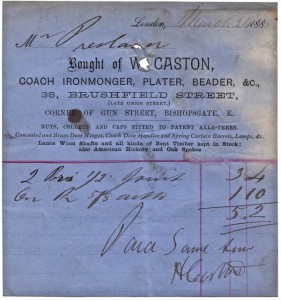 London, March 2 188
Mr
Bought of W. CASTON,
COACH IRONMONGER, PLATER, BEADER, &c.,
38, BRUSHFIELD STREET,
(LATE UNION STREET,)
CORNER OF GUN STREET, BISHOPSGATE, E.
NUTS, COLLETS AND CAPS FITTED TO PATENT AXLE-TREES.
Concealed and Brass Door Hinges, Coach Door Handles and Spring Curtain Barrels, Lamps, &c.
Lance Wood Shafts and all kinds of Bent Timber kept in Stock;
also American Hickory and Oak Spokes
2 Prs 1/2 Joint 3 4
One Pr 1 10
5 2
Paid Same time
W Caston